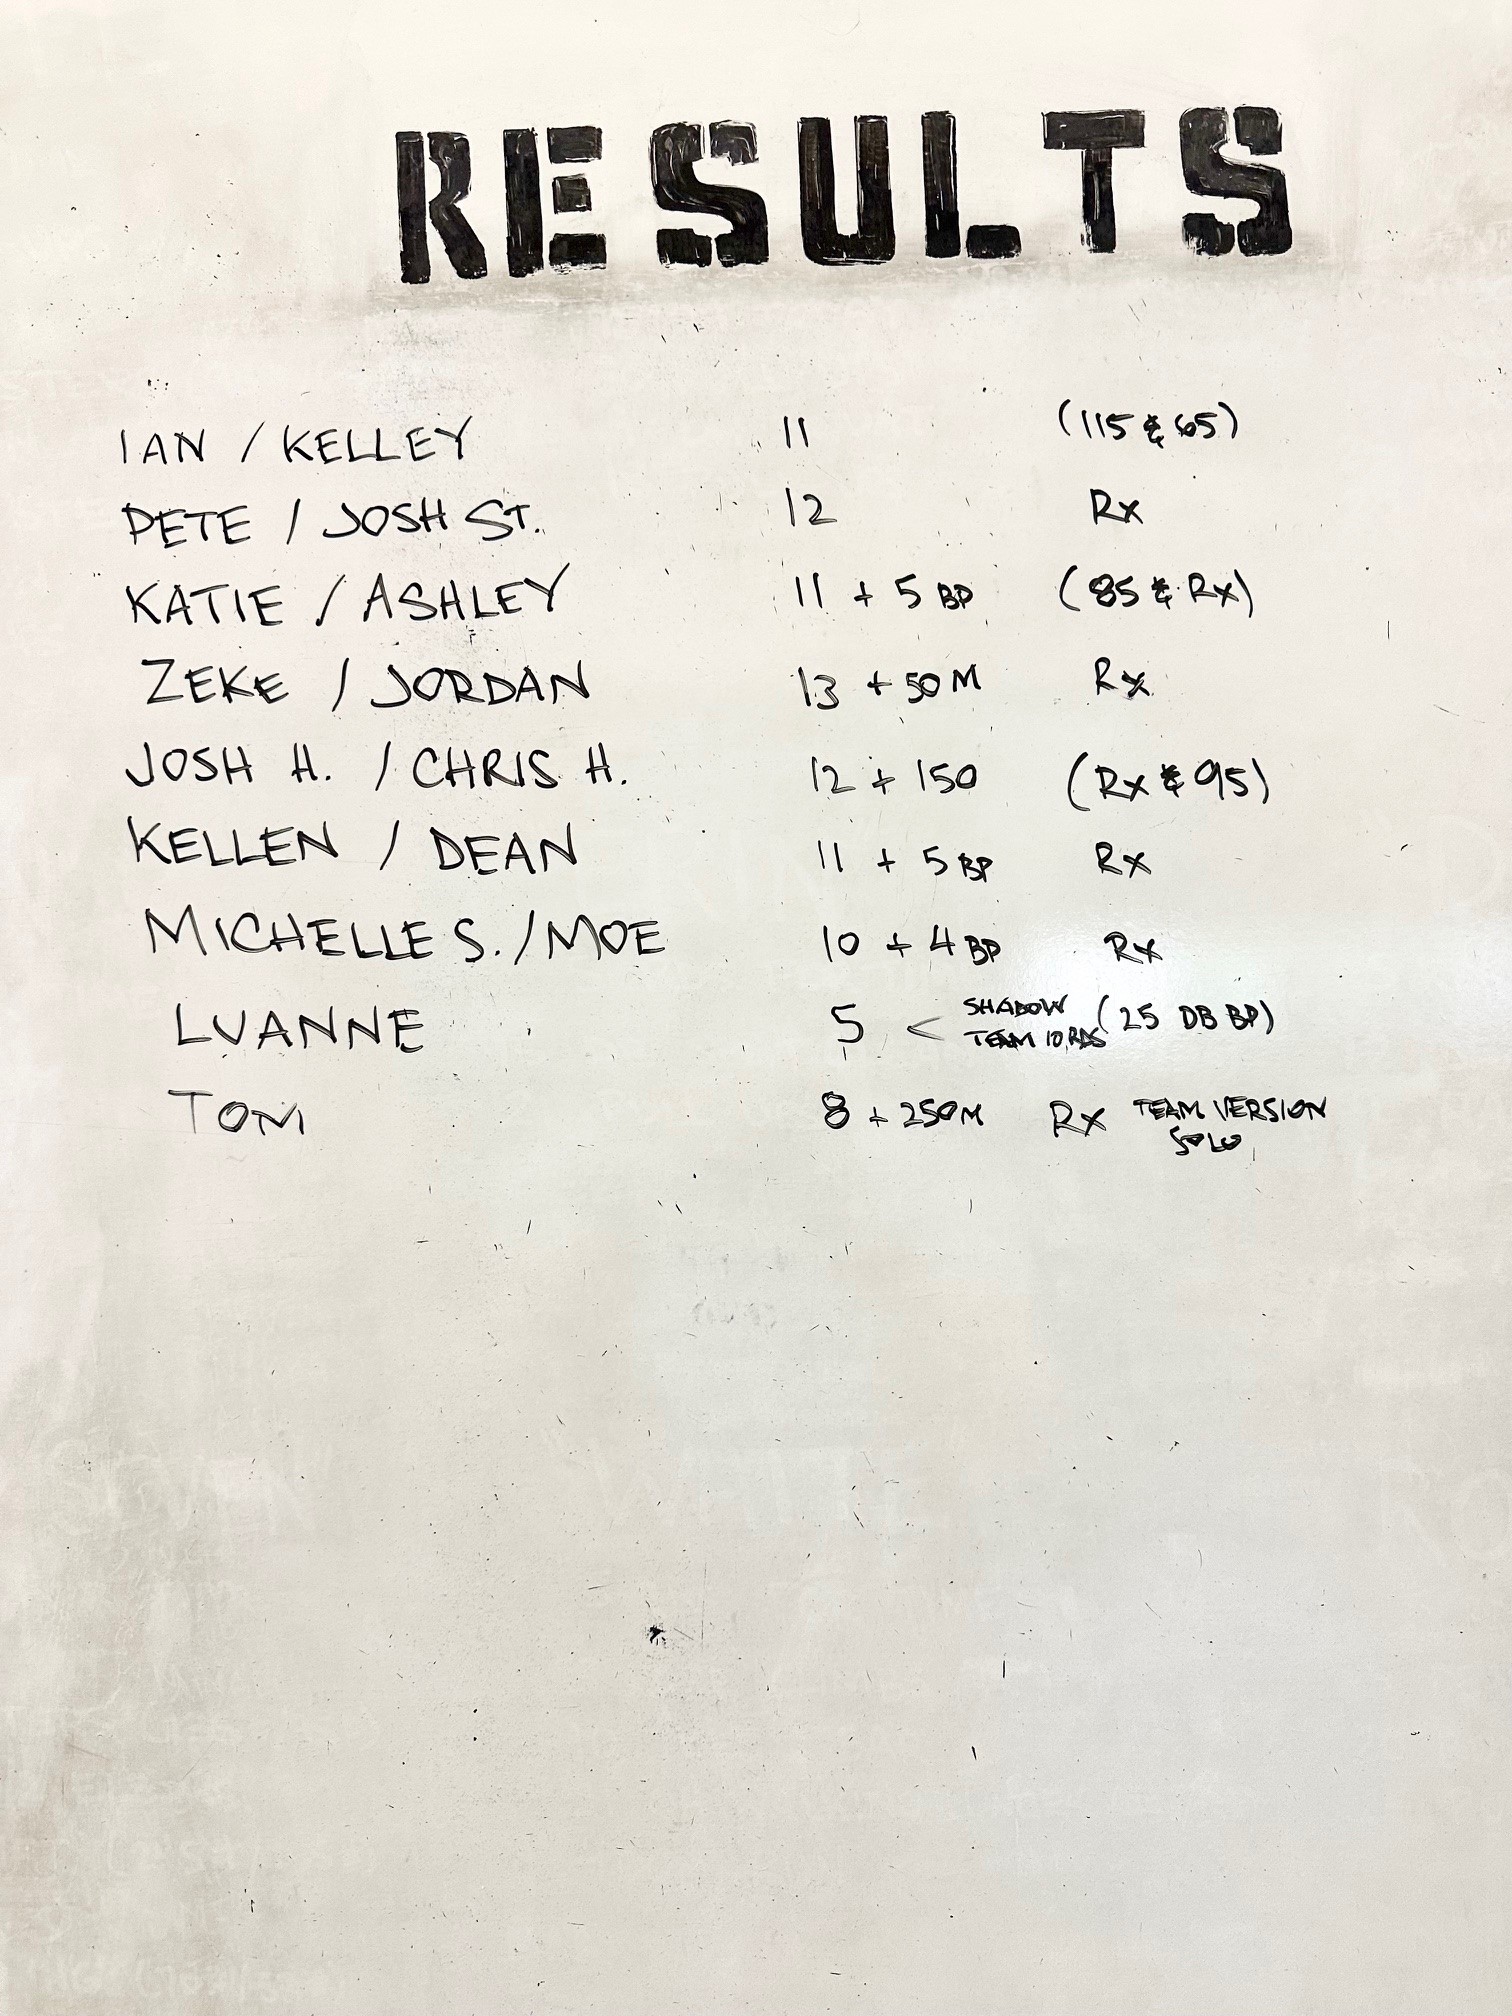 RESULTS
IAN / KELLEY 11 (115 & 65)
PETE / JOSH ST. 12 Rx
KATIE / ASHLEY 11 + 5 BP (85 & Rx)
ZEKE / JORDAN 13 + 50 M Rx
JOSH H. / CHRIS H. 12 + 150 (Rx & 95)
KELLEN / DEAN 11 + 5 BP Rx
MICHELLE S. / MOE 10 + 4 BP Rx
LUANNE 5 < SHADOW TEAM 10 RDS (25 DB BP)
TOM 8 + 250M Rx TEAM VERSION
SOLO